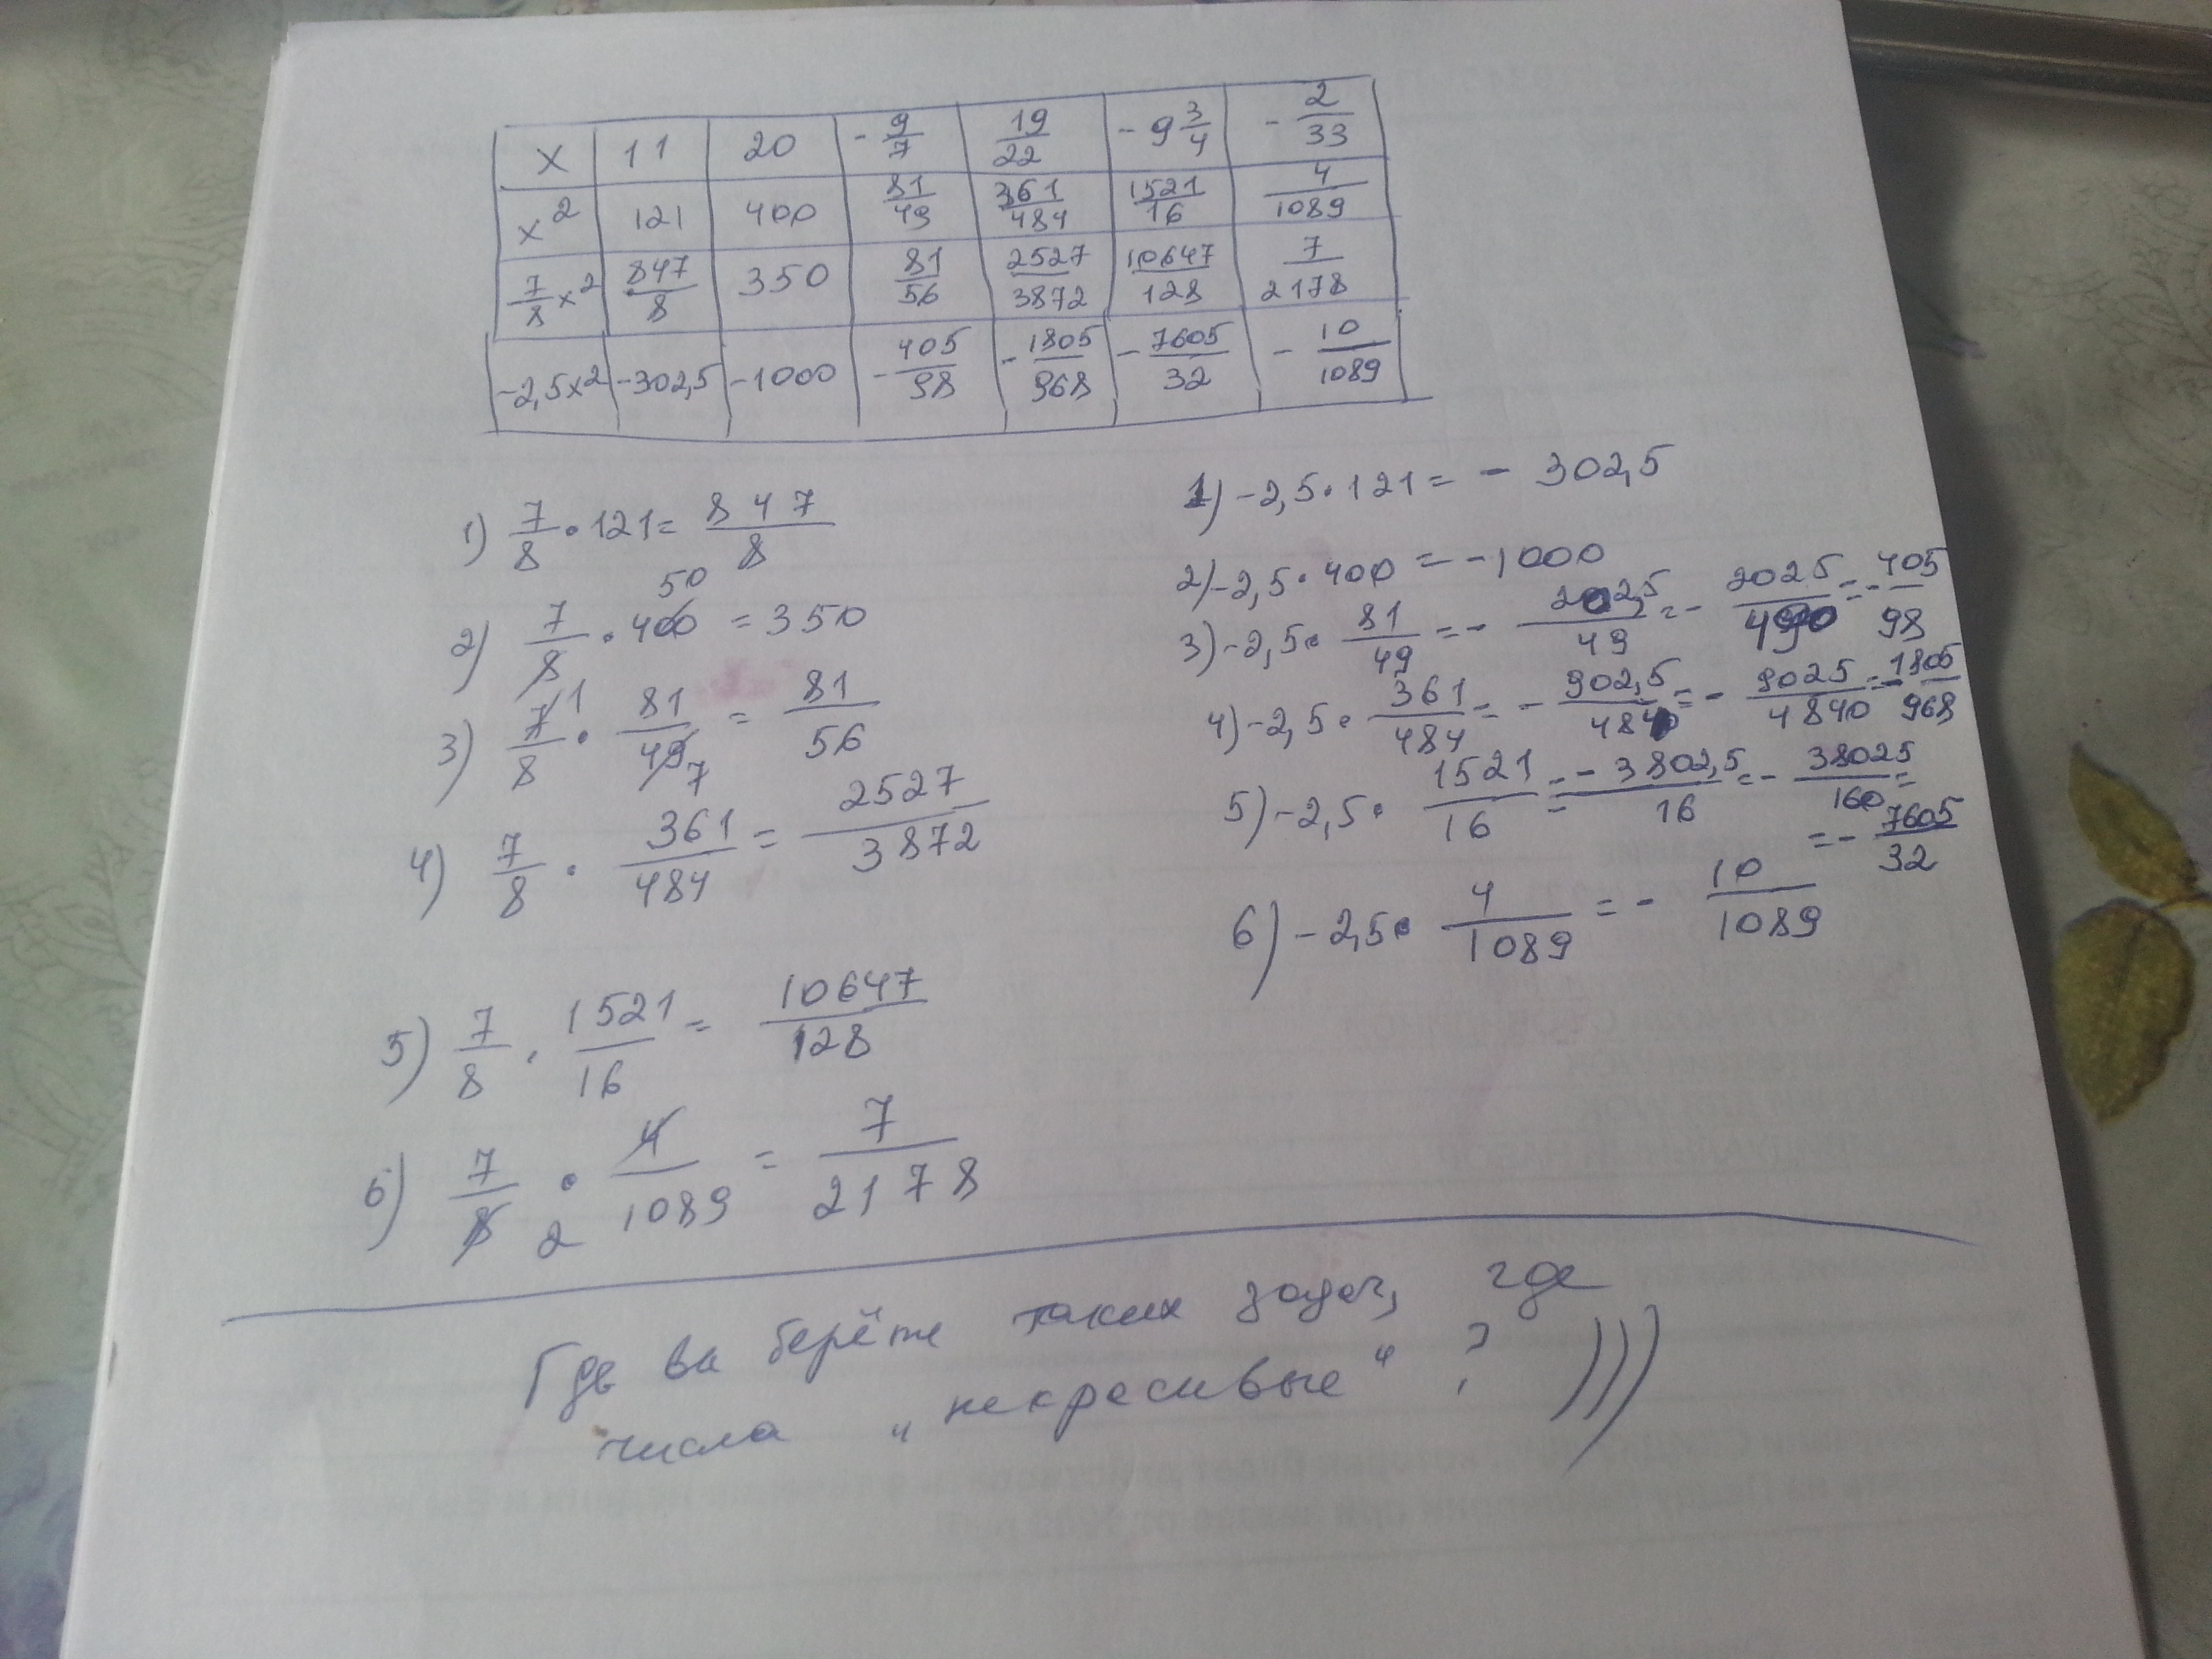 x | 11 | 20 | -9/7 | 19/22 | -9 3/4 | -2/33
x² | 121 | 400 | 81/49 | 361/484 | 1521/16 | 4/1089
7/8 x² | 847/8 | 350 | 81/56 | 2527/3872 | 10647/128 | 7/2178
-2,5x² | -302,5 | -1000 | -405/98 | -1805/968 | -7605/32 | -10/1089
1) 7/8 · 121 = 847/8
2) 7/8 · 400 = 350
50
3) 7/8 · 81/49 = 81/56
1
7
4) 7/8 · 361/484 = 2527/3872
5) 7/8 · 1521/16 = 10647/128
6) 7/8 · 4/1089 = 7/2178
2
1) -2,5 · 121 = - 302,5
2) -2,5 · 400 = -1000
3) -2,5 · 81/49 = - 202,5/49 = - 2025/490 = - 405/98
4) -2,5 · 361/484 = - 902,5/484 = - 9025/4840 = - 1805/968
5) -2,5 · 1521/16 = - 3802,5/16 = - 38025/160 =
= - 7605/32
6) -2,5 · 4/1089 = - 10/1089
Где вы берёте таких задач, где
числа „некрасивые“ ? )))